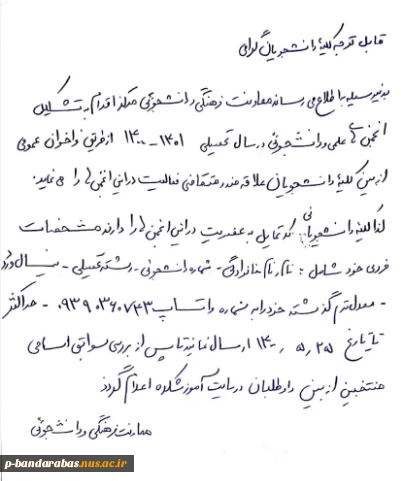 قابل توجه کلیه دانشجویان گرامی
بدینوسیله به اطلاع می رساند معاونت فرهنگی دانشجوئی مرکز اقدام به تشکیل
انجمن های علمی دانشجوئی در سال تحصیلی ۱۴۰۱ - ۱۴۰۰ از طریق فراخوان عمومی
از بین کلیه دانشجویان علاقه مند و متقاضی فعالیت در این انجمن ها را می نماید.
لذا کلیه دانشجویانی که تمایل به عضویت در این انجمن ها را دارند مشخصات
فردی خود شامل : نام و نام خانوادگی - شماره دانشجوئی - رشته تحصیلی - نیمسال ورود
- معدل ترم گذشته خود را به شماره واتساپ ۰۹۳۹۰۳۶۰۷۴۳ - حداکثر
تا تاریخ ۱۴۰۰/۵/۲۵ ارسال نمایند تا پس از بررسی سوابق اسامی
منتخبین از بین داوطلبان در سایت آموزشکده اعلام گردد
معاونت فرهنگی و دانشجوئی
p-bandarabas.nus.ac.ir